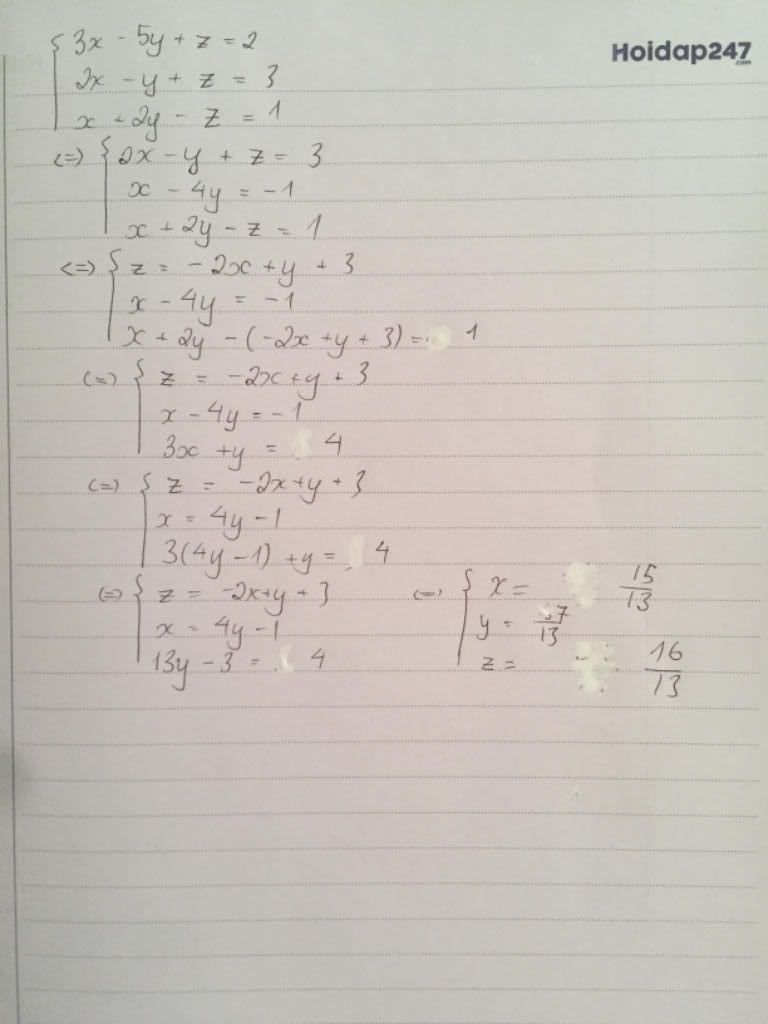 Hoidap247
.com
{ 3x - 5y + z = 2
2x - y + z = 3
x + 2y - z = 1
<=> { 2x - y + z = 3
x - 4y = -1
x + 2y - z = 1
<=> { z = -2x + y + 3
x - 4y = -1
x + 2y - (-2x + y + 3) = 1
(=) { z = -2x + y + 3
x - 4y = -1
3x + y = 4
(=) { z = -2x + y + 3
x = 4y - 1
3(4y - 1) + y = 4
(=) { z = -2x + y + 3
x = 4y - 1
13y - 3 = 4
(=) { x = 15/13
y = 7/13
z = 16/13